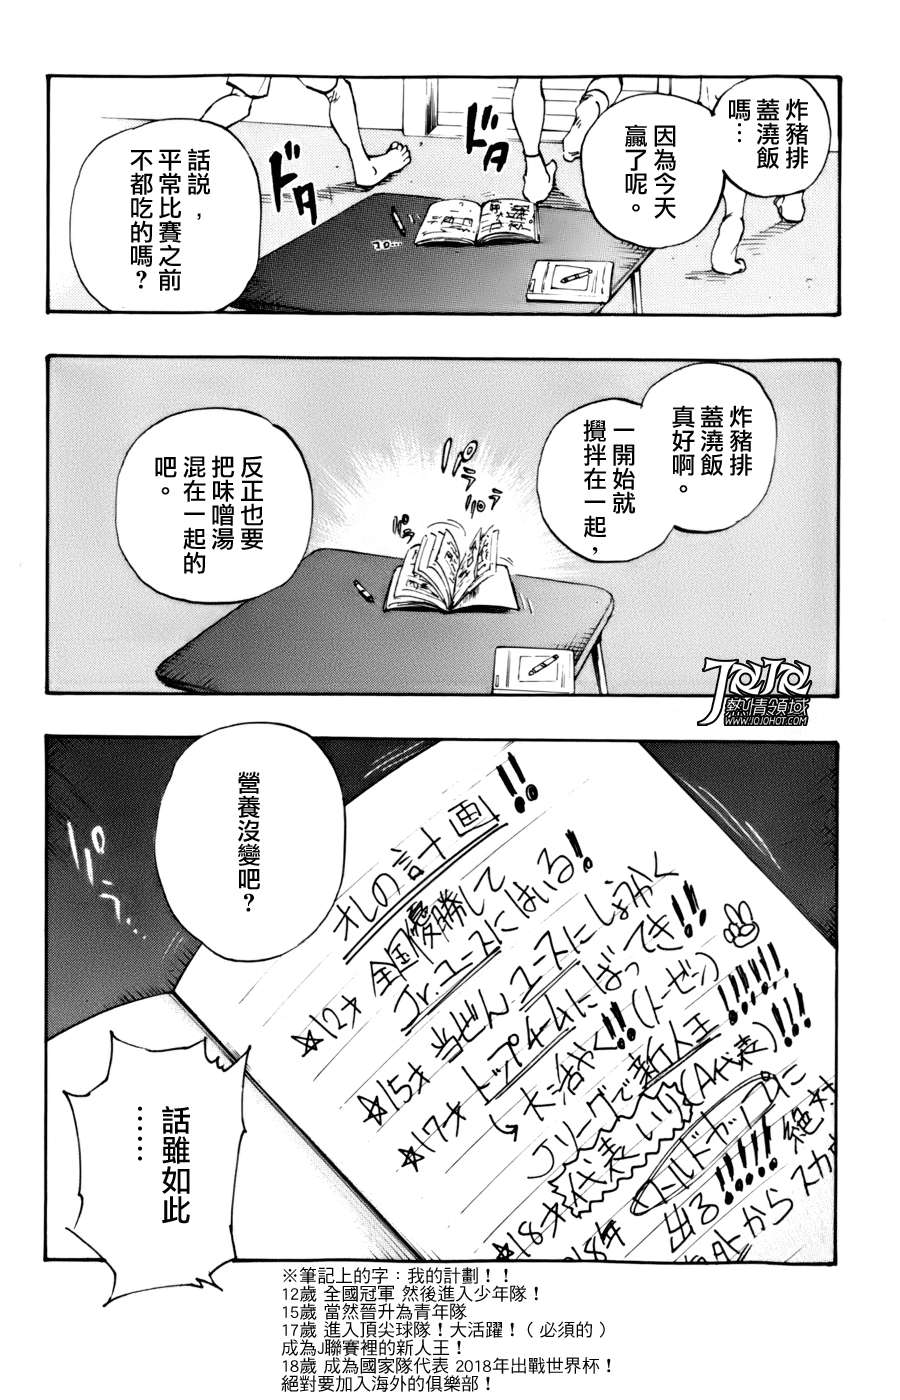 炸豬排
蓋澆飯
嗎…
因為今天
贏了呢。
ドタ
ドタ
話說，
平常比賽之前
不都吃的嗎？
炸豬排
蓋澆飯
真好啊。
一開始就
攪拌在一起，
反正也要
把味噌湯
混在一起的
吧。
パラ
JOJO
熱情領域
WWW.JOJOHOT.COM
營養沒變吧？
オレの計画!!
☆12才 全国優勝して
Jr.ユースにはいる!
☆15才 当ぜんユースにしょうかく
☆17才 トップチームにばってき!!
大活やく!!(トーゼン)
Jリーグで新人王!!!!!!
☆18才 代表いり(A代表)!!!
18年 ワールドカップに
出る!!!!! 絶対
話雖如此
……
※筆記上的字：我的計劃！！
12歲 全國冠軍 然後進入少年隊！
15歲 當然晉升為青年隊
17歲 進入頂尖球隊！大活躍！（必須的）
成為J聯賽裡的新人王！
18歲 成為國家隊代表 2018年出戰世界杯！
絕對要加入海外的俱樂部！